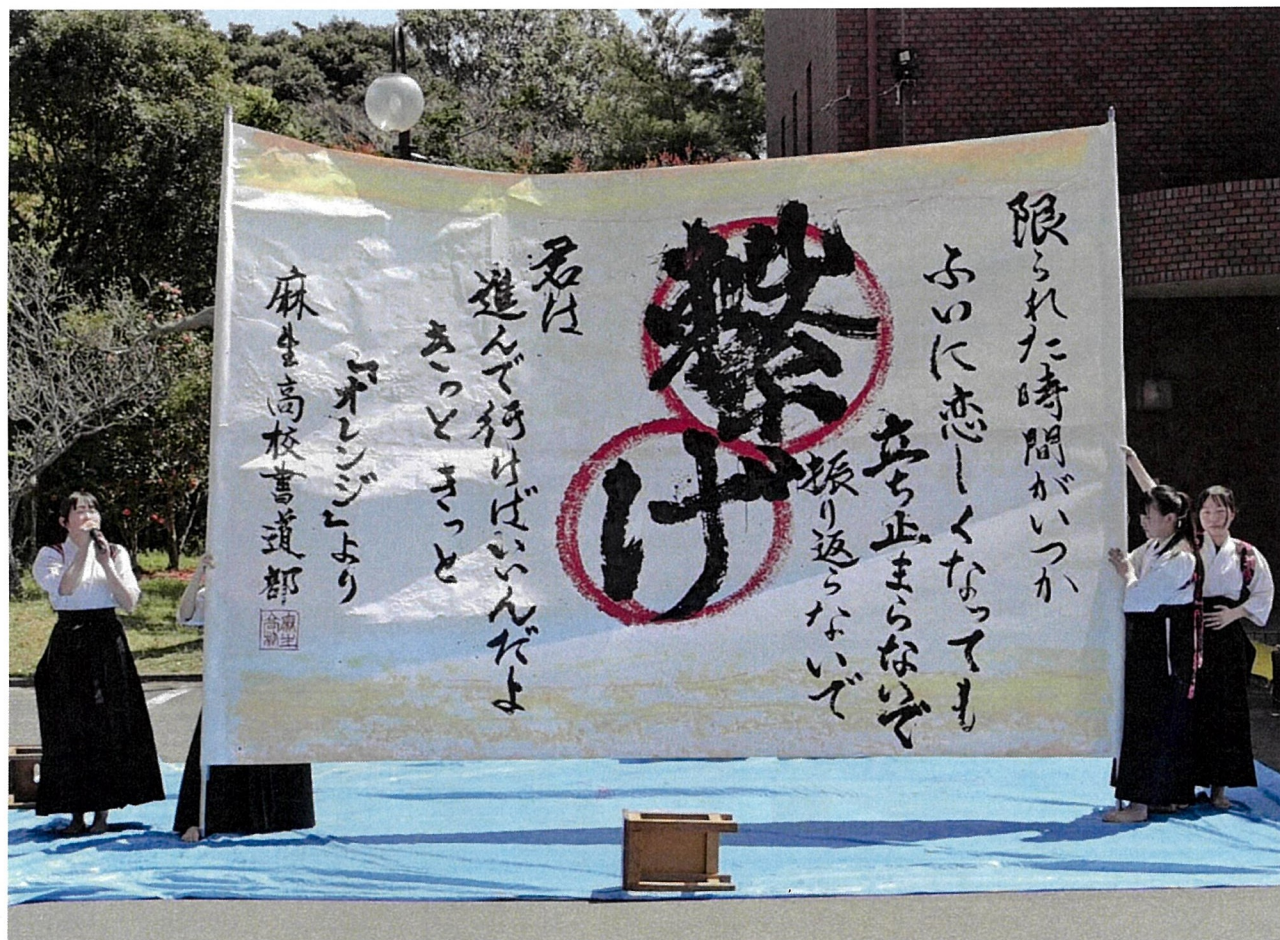 限られた時間がいつか
ふいに恋しくなっても
立ち止まらないで
振り返らないで
繋げ
君は
進んで行けばいいんだよ
きっときっと
『オレンジ』より
麻生高校書道部